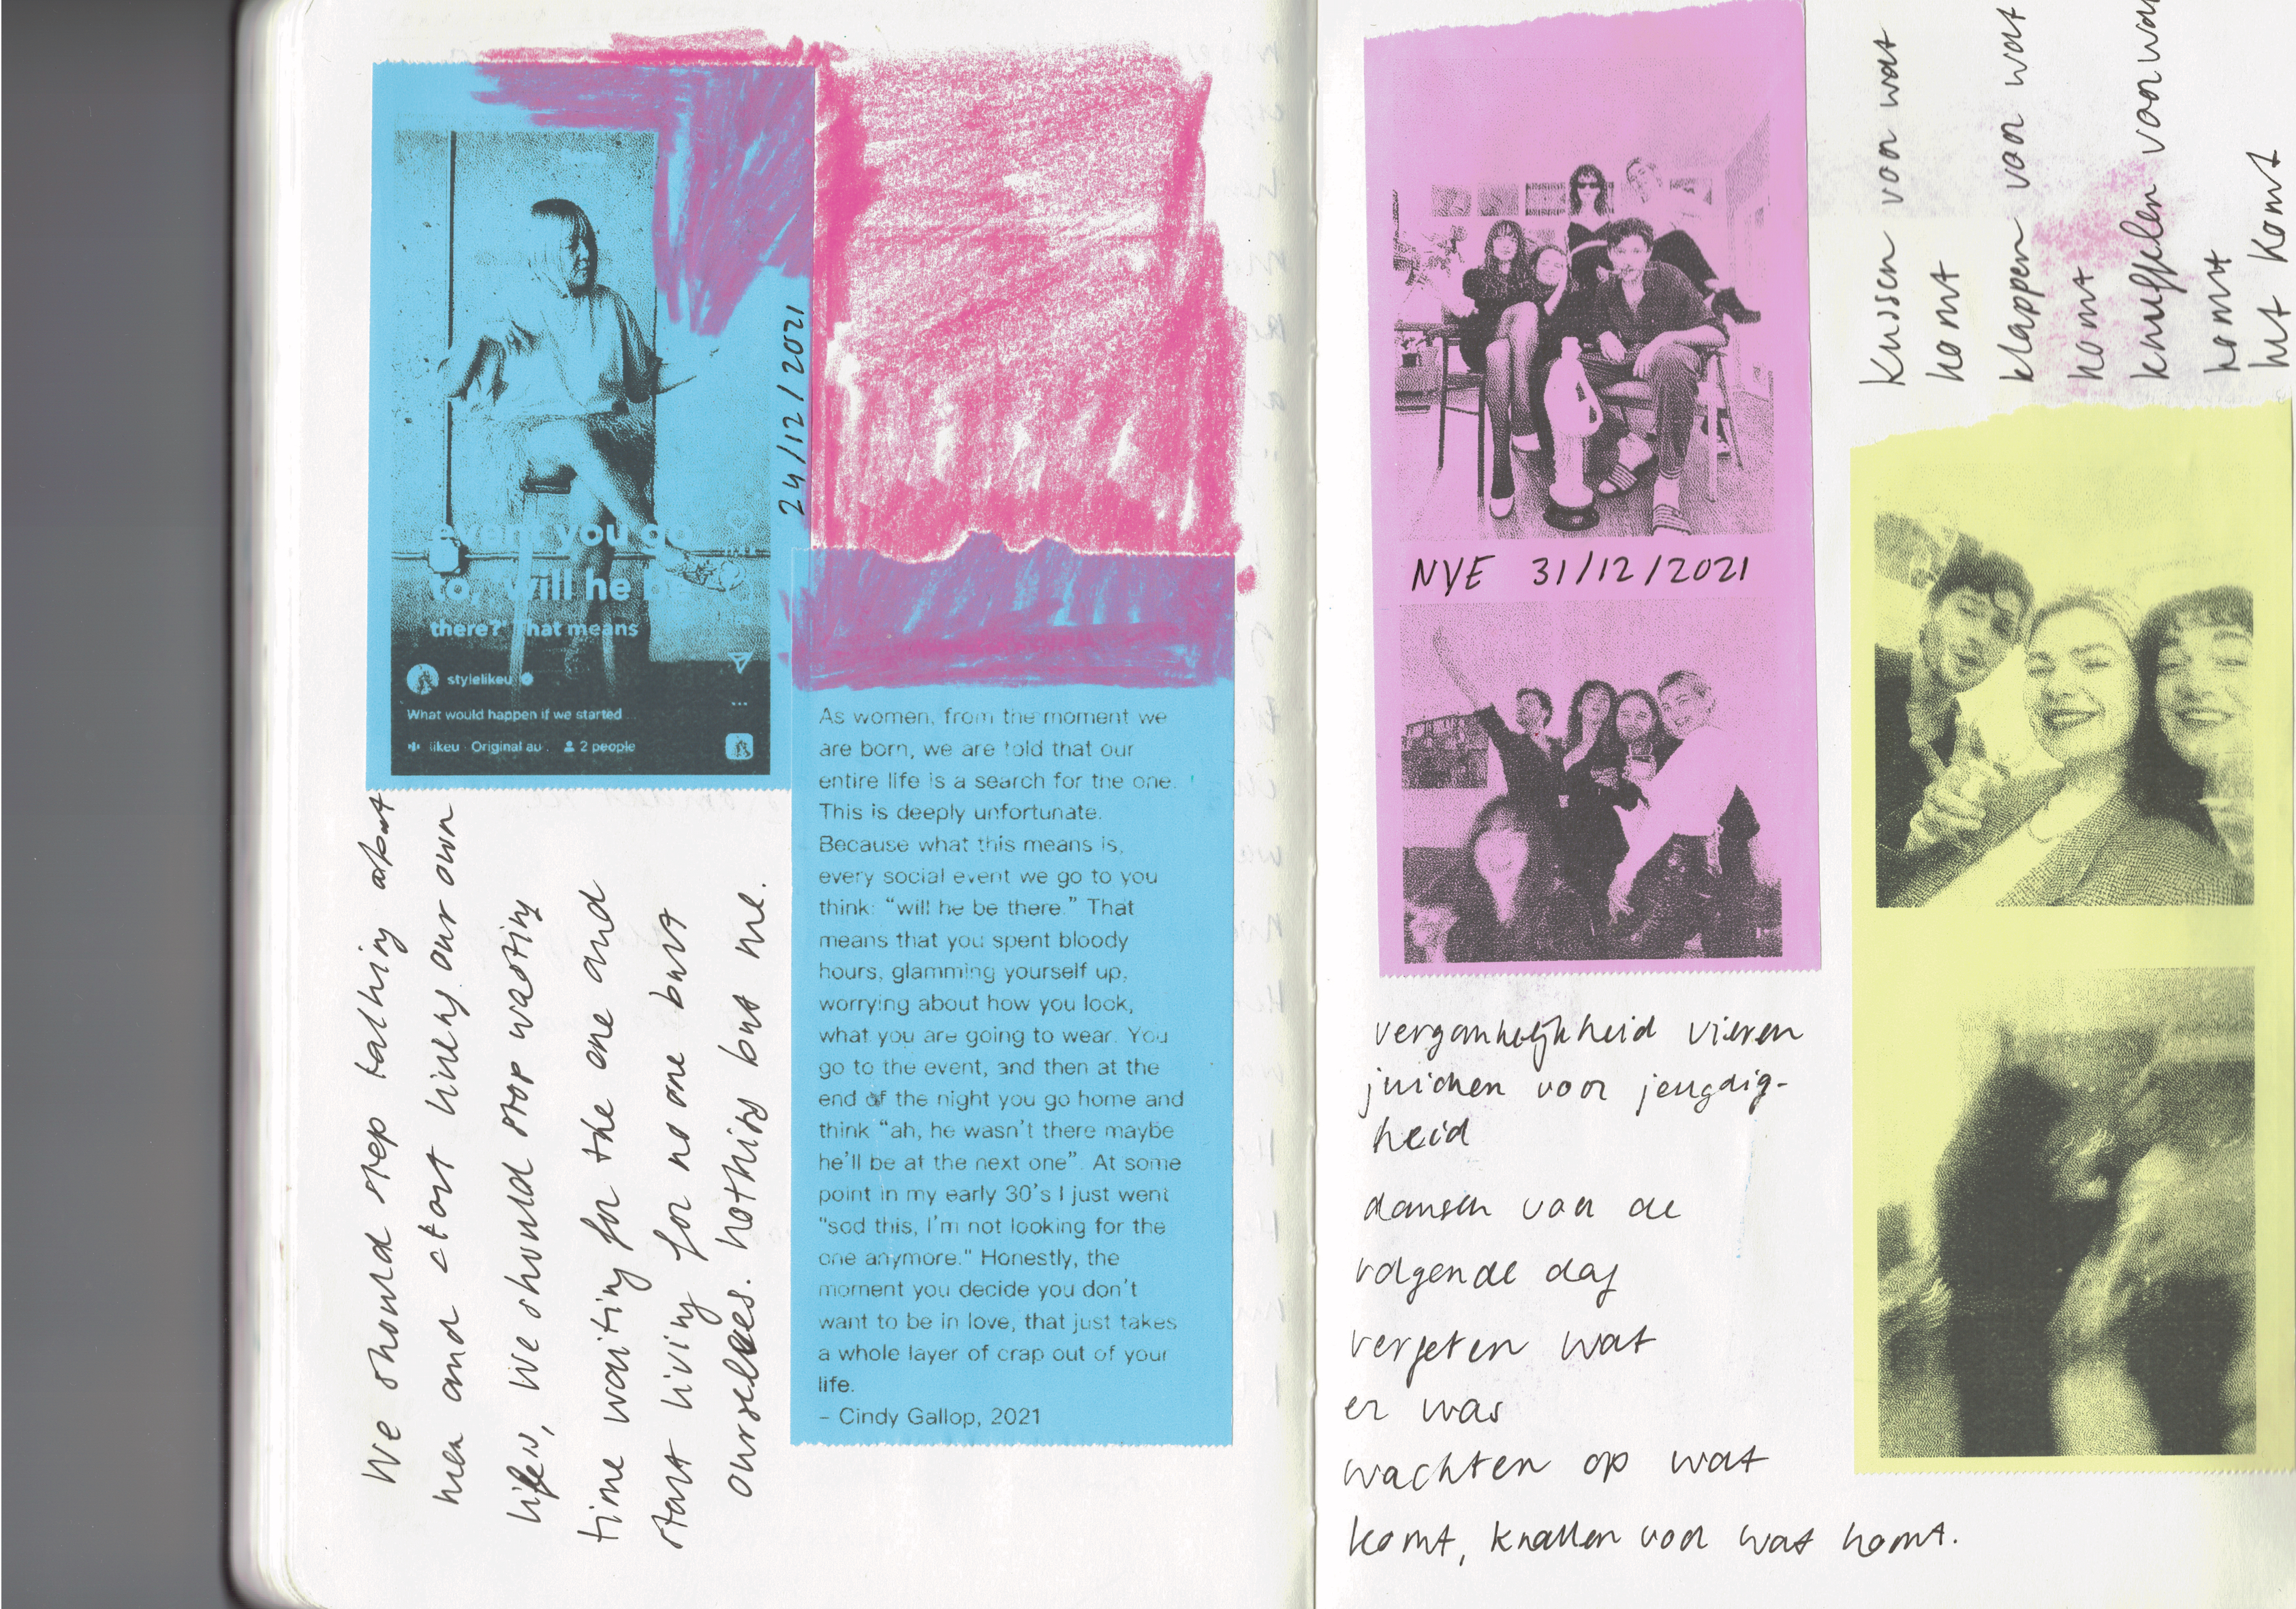 event you go
to, "will he be
there?" That means
stylelikeu
What would happen if we started ...
likeu · Original au . 2 people
24/12/2021
We should stop talking about
men and start living our own
lifes, we should stop wasting
time waiting for the one and
start living for no one but
ourselves. nothing but me.
As women, from the moment we
are born, we are told that our
entire life is a search for the one.
This is deeply unfortunate.
Because what this means is,
every social event we go to you
think: “will he be there.” That
means that you spent bloody
hours, glamming yourself up,
worrying about how you look,
what you are going to wear. You
go to the event, and then at the
end of the night you go home and
think “ah, he wasn’t there maybe
he’ll be at the next one”. At some
point in my early 30’s I just went
"sod this, I’m not looking for the
one anymore." Honestly, the
moment you decide you don’t
want to be in love, that just takes
a whole layer of crap out of your
life.
– Cindy Gallop, 2021
NYE 31/12/2021
vergankelijkheid vieren
juichen voor jeugdig-
heid
dansen voor de
volgende dag
vergeten wat
er was
wachten op wat
komt, knallen voor wat komt.
kussen voor wat
komt
klappen voor wat
komt
knuffelen voor wat
komt
het komt